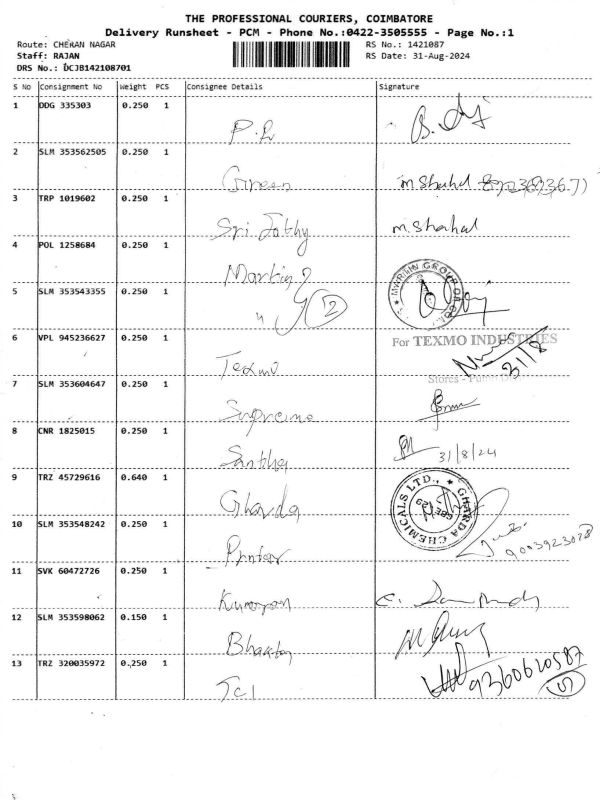 THE PROFESSIONAL COURIERS, COIMBATORE
Delivery Runsheet - PCM - Phone No.:0422-3505555 - Page No.:1
Route: CHERAN NAGAR
RS No.: 1421087
Staff: RAJAN
RS Date: 31-Aug-2024
DRS No.: DCJB142108701
S No Consignment No Weight PCS Consignee Details Signature
1 DDG 335303 0.250 1
2 SLM 353562505 0.250 1
Green M Shahal
3 TRP 1019602 0.250 1
Sri Jothy M. Shahal
4 POL 1258684 0.250 1
Martin
MARTIN GROUP OF CO
5 SLM 353543355 0.250 1
" 2
6 VPL 945236627 0.250 1
For TEXMO INDUSTRIES
Texmo 31/8
Stores
7 SLM 353604647 0.250 1
Supreme
8 CNR 1825015 0.250 1
Santha 31/8/24
9 TRZ 45729616 0.640 1
Gharda
GHARDA CHEMICALS LTD.,
10 SLM 353548242 0.250 1
9003923028
11 SVK 60472726 0.250 1
Kumaran
12 SLM 353598062 0.150 1
13 TRZ 320035972 0.250 1
Tcl 9360620587